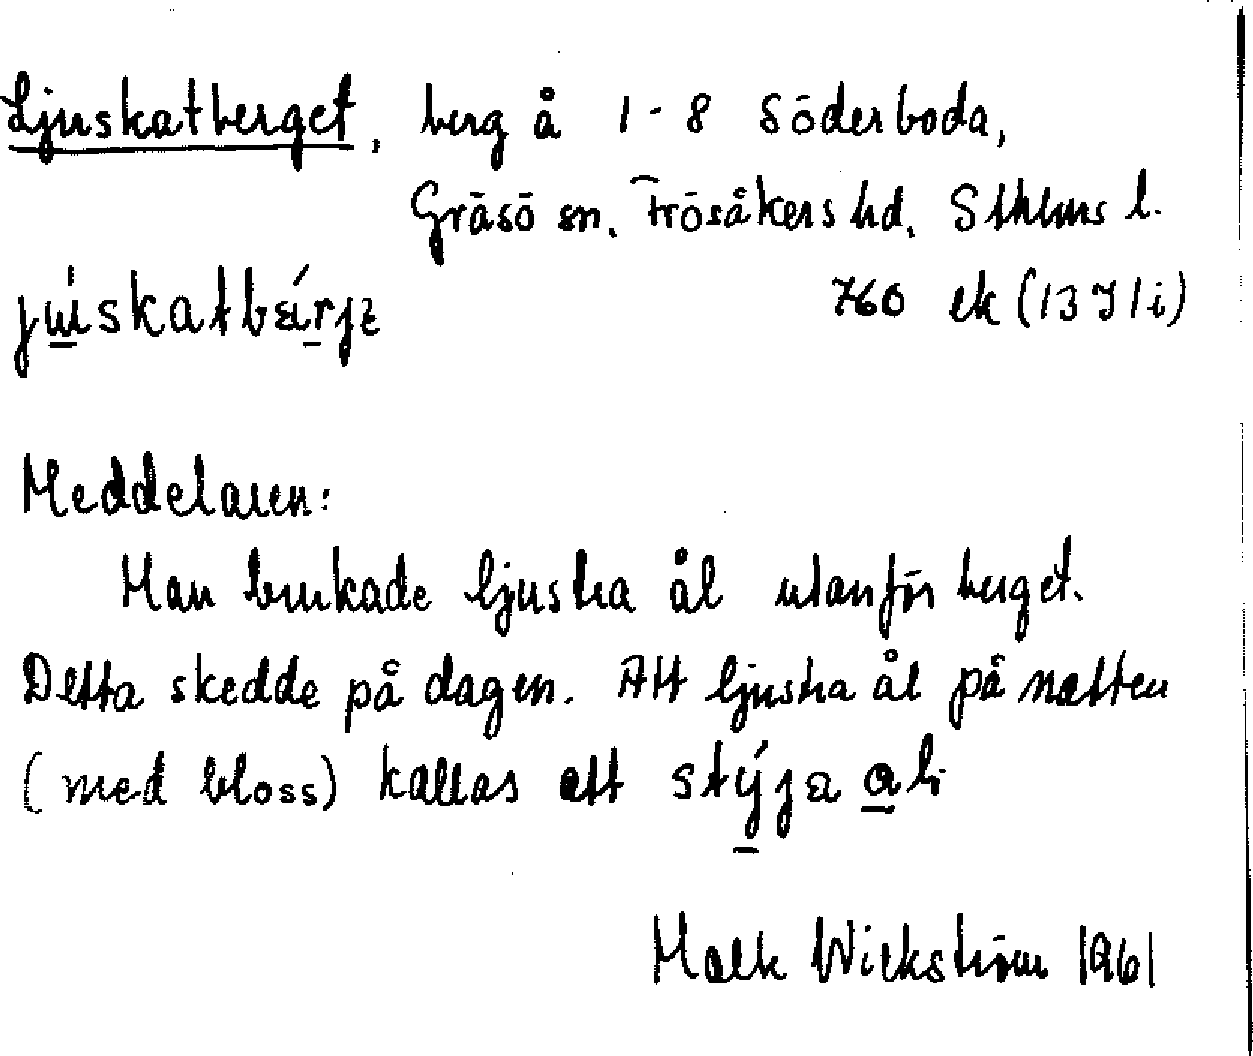 Ljuskatberget, berg å 1-8 Söderboda,
Gräsö sn. Frösåkers hd. Sthlms l.
760 ek (13 I 1 i)
Meddelaren:
Man brukade ljustra ål utanför berget.
Detta skedde på dagen. Att ljustra ål på natten
(med bloss) kallas att
Mack Wickström 1961